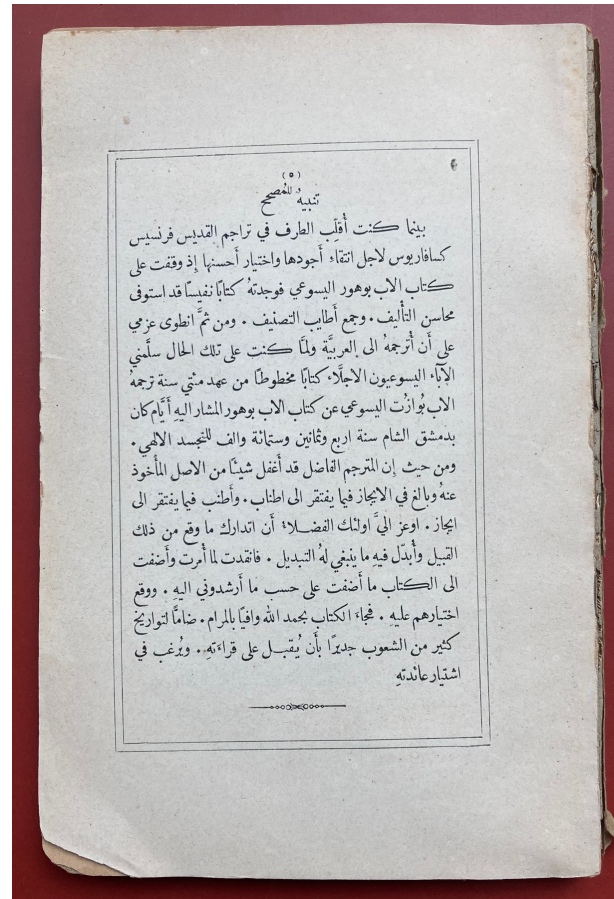 (٥)
تنبيهٌ للمُصحح
بينما كنت أُقلِّب الطرف في تراجم القديس فرنسيس
كسافاريوس لاجل انتقاء أَجودها واختيار أَحسنها إذ وقفت على
كتاب الاب بوهور اليسوعي فوجدتهُ كتابًا نفيسًا قد استوفى
محاسن التأليف ٠ وجمع أَطايب التصنيف ٠ ومن ثمَّ انطوى عزمي
على أَن أُترجمهُ الى العربيَّة ولمَّا كنت على تلك الحال سلَّمني
الآباء اليسوعيون الاجلَّاء كتابًا مخطوطًا من عهد مئتي سنة ترجمهُ
الاب بُوازْت اليسوعي عن كتاب الاب بوهور المشار اليهِ أَيَّام كان
بدمشق الشام سنة اربع وثمانين وستمائة والف للتجسد الالهي ٠
ومن حيث إِن المترجم الفاضل قد أَغفل شيئًا من الاصل المأخوذ
عنهُ وبالغ في الايجاز فيما يفتقر الى اطناب ٠ وأَطنب فيما يفتقر الى
ايجاز ٠ اوعز اليَّ اولئك الفضلاءُ أَن اتدارك ما وقع من ذلك
القبيل وأُبدّل فيهِ ما ينبغي لهُ التبديل ٠ فانقدت لما أُمرت وأَضفت
الى الكتاب ما أَضفت على حسب ما أَرشدوني اليهِ ٠ ووقع
اختيارهم عليهِ ٠ فجاءَ الكتاب بحمد الله وافيًا بالمرام ٠ ضامًّا لتواريخ
كثير من الشعوب جديرًا بأَن يُقبل على قراءَتهِ ٠ ويُرغب في
اشتيار عائدتهِ